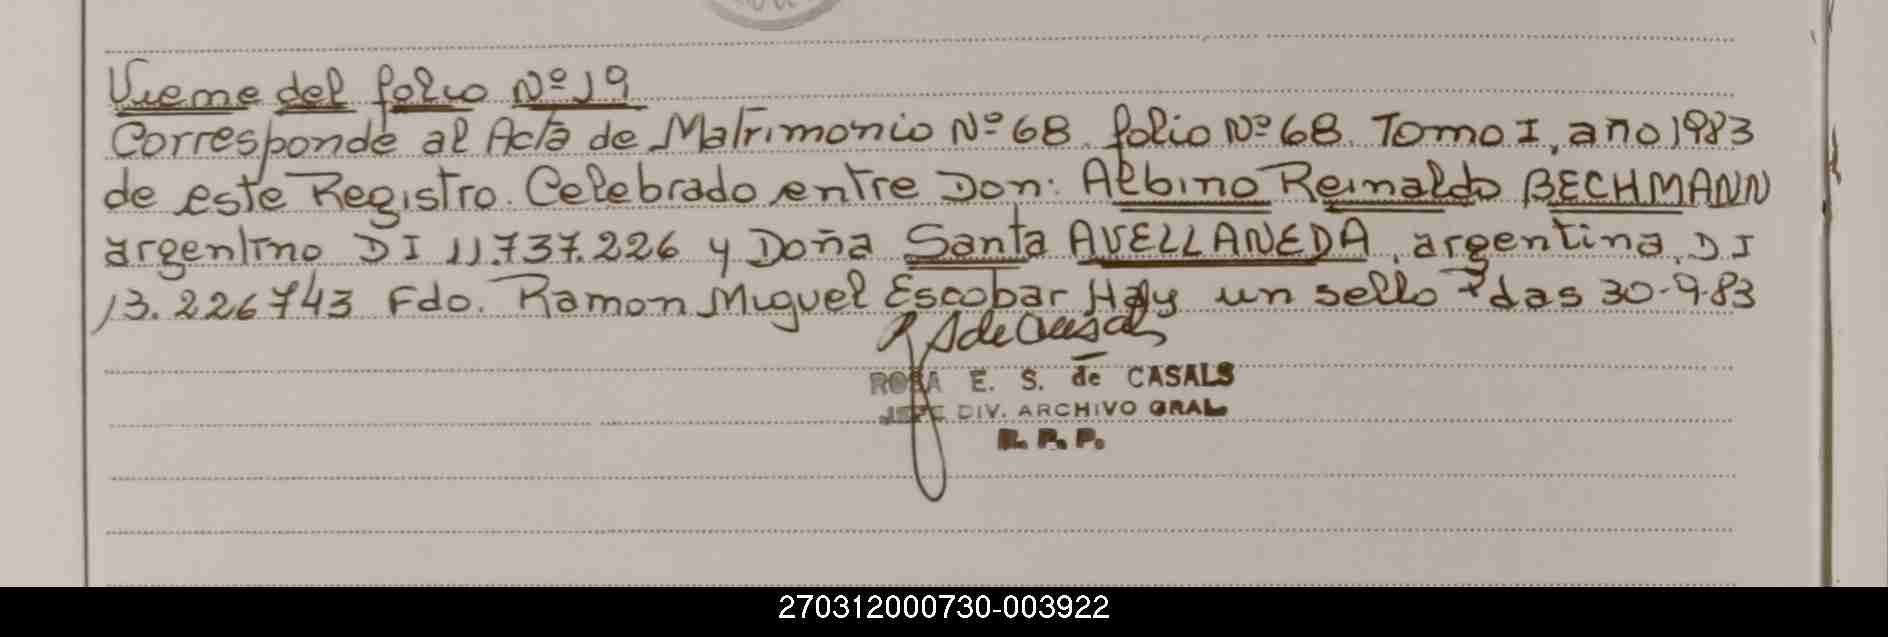 Vieme del folio Nº 19
Corresponde al Acta de Matrimonio Nº 68 folio Nº 68. Tomo I, año 1983
de este Registro. Celebrado entre Don: Albino Reinaldo BECHMANN
argentino DI 11.737.226 y Doña Santa AVELLANEDA, argentina, DI
13.226743 Fdo. Ramon Miguel Escobar Hay un sello das 30-9-83
R S de Casals
ROSA E. S. de CASALS
JEFE DIV. ARCHIVO GRAL
R. P. P.
270312000730-003922